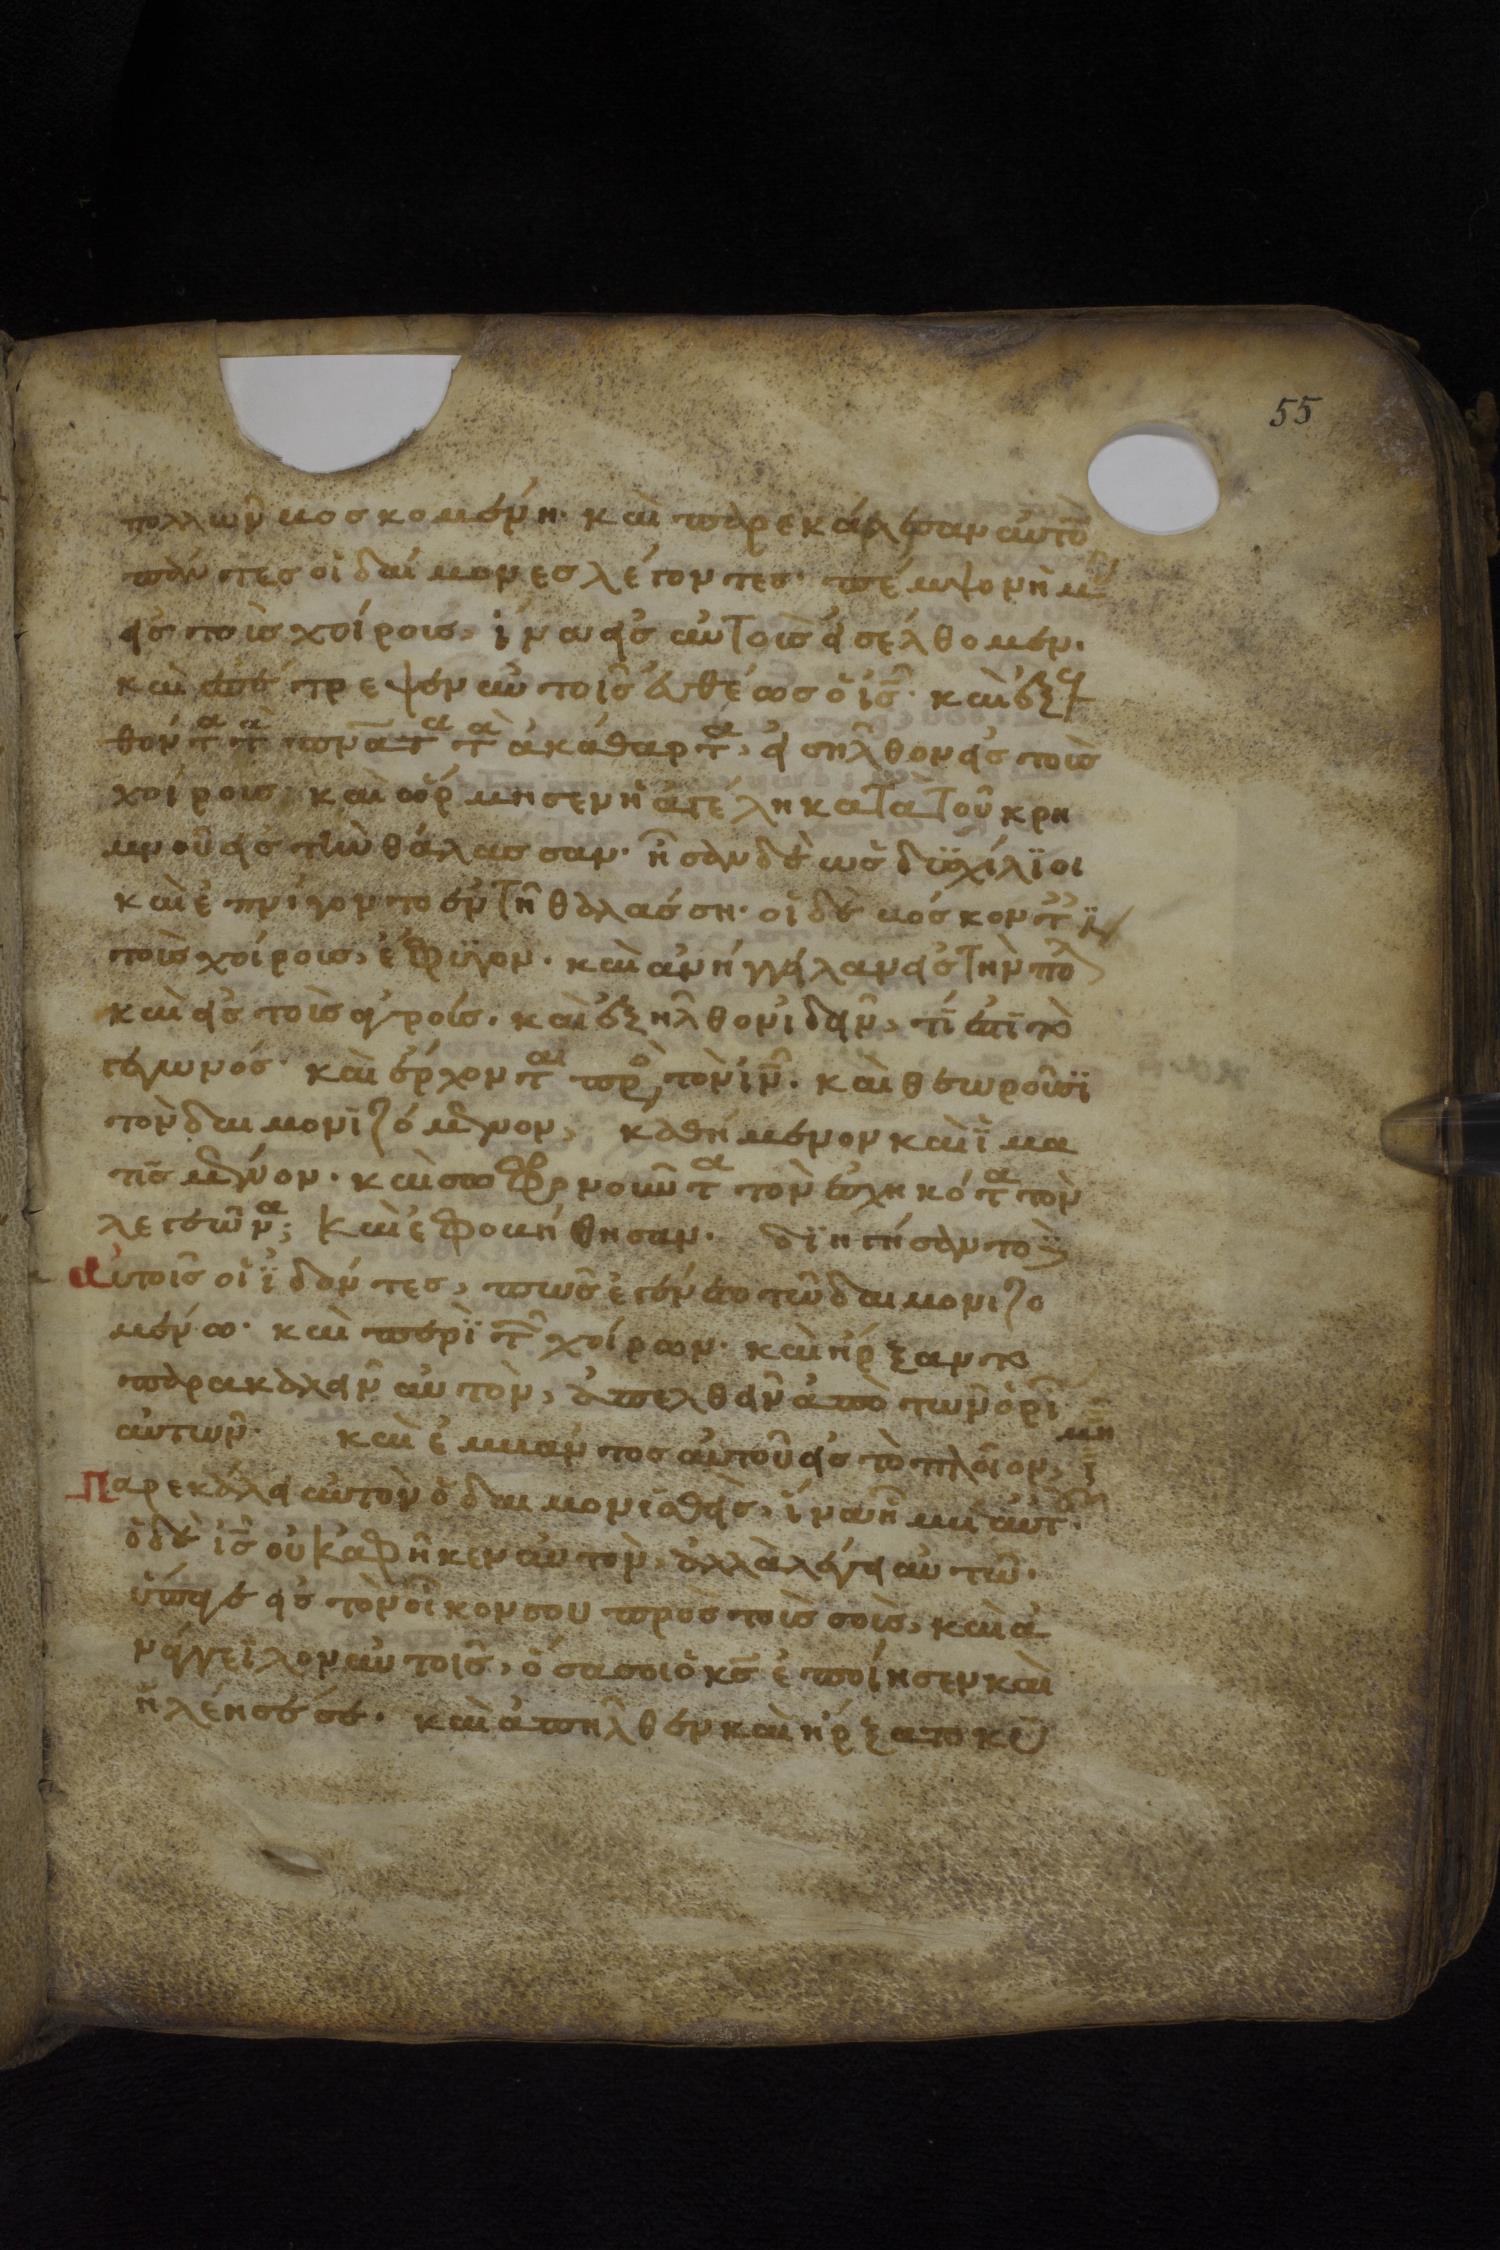 55
πολλων βοσκομένη· καὶ παρεκάλεσαν αὐτὸ
πάντες οἱ δαίμονες λέγοντες· πέμψον ἡμ
εἰς τοὺς χοίρους, ἵνα εἰς αὐτοὺς εἰσέλθομεν·
καὶ ἐπέτρεψεν αὐτοῖς εὐθέως ὁ ις· καὶ ἐξελ
θόντα τὰ πνατα τὰ ἀκάθαρτα, εἰσῆλθον εἰς τοὺς
χοίρους· καὶ ὥρμησεν ἡ ἀγέλη κατὰ τοῦ κρη
μνοῦ εἰς τὴν θάλασσαν· ἦσαν δὲ ὡς δϊσχίλϊοι
καὶ ἐπνίγοντο ἐν τῇ θαλάσση· οἱ δὲ βόσκοντ
τοὺς χοίρους, ἔφυγον· καὶ ἀνήγγειλαν εἰς τὴν πολ
καὶ εἰς τοὺς ἀγρούς· καὶ ἐξῆλθον ἰδεῖν, τί ἐστϊ τὸ
γεγωνός· καὶ ἔρχονται πρὸ τὸν ιν· καὶ θεωροῦσϊ
τὸν δαιμονϊζόμενον, καθήμενον καὶ ἱμα
τισμένον· καὶ σωφρονοῦντα τὸν ἐσχηκότα τὸν
λεγεῶνα; καὶ ἐφοβήθησαν· δϊηγήσαντο
αὐτοῖς οἱ ϊδόντες, πῶς ἐγένετο τῶ δαιμονιζο
μένω· καὶ περὶ τ χοίρων· καὶ ἤρξαντο
παρακαλεῖν αὐτὸν, ἀπελθεῖν ἀπὸ τῶν ὁρι
αὐτῶν· καὶ ἐμβάντος αὐτοῦ εἰς τὸ πλοῖον,
παρεκάλει αὐτὸν ὁ δαιμονισθεὶς, ἵνα ἦ μετ αὐτ·
ὁ δὲ ις οὐκ ἀφῆκεν αὐτὸν, ἀλλὰ λέγει αὐτῶ·
ὕπαγε εἰς τὸν οἶκον σου πρὸς τοὺς σοὺς, καὶ ἀ
νάγγειλον αὐτοῖς, ὅσα σοι ὁ κς ἐποίησεν καὶ
ἠλέησέ σε· καὶ ἀπῆλθεν καὶ ἤρξατο κη